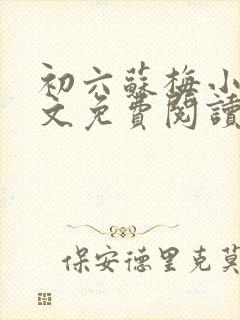 初六蘇梅小
文免費閱讀
保安德里克莫